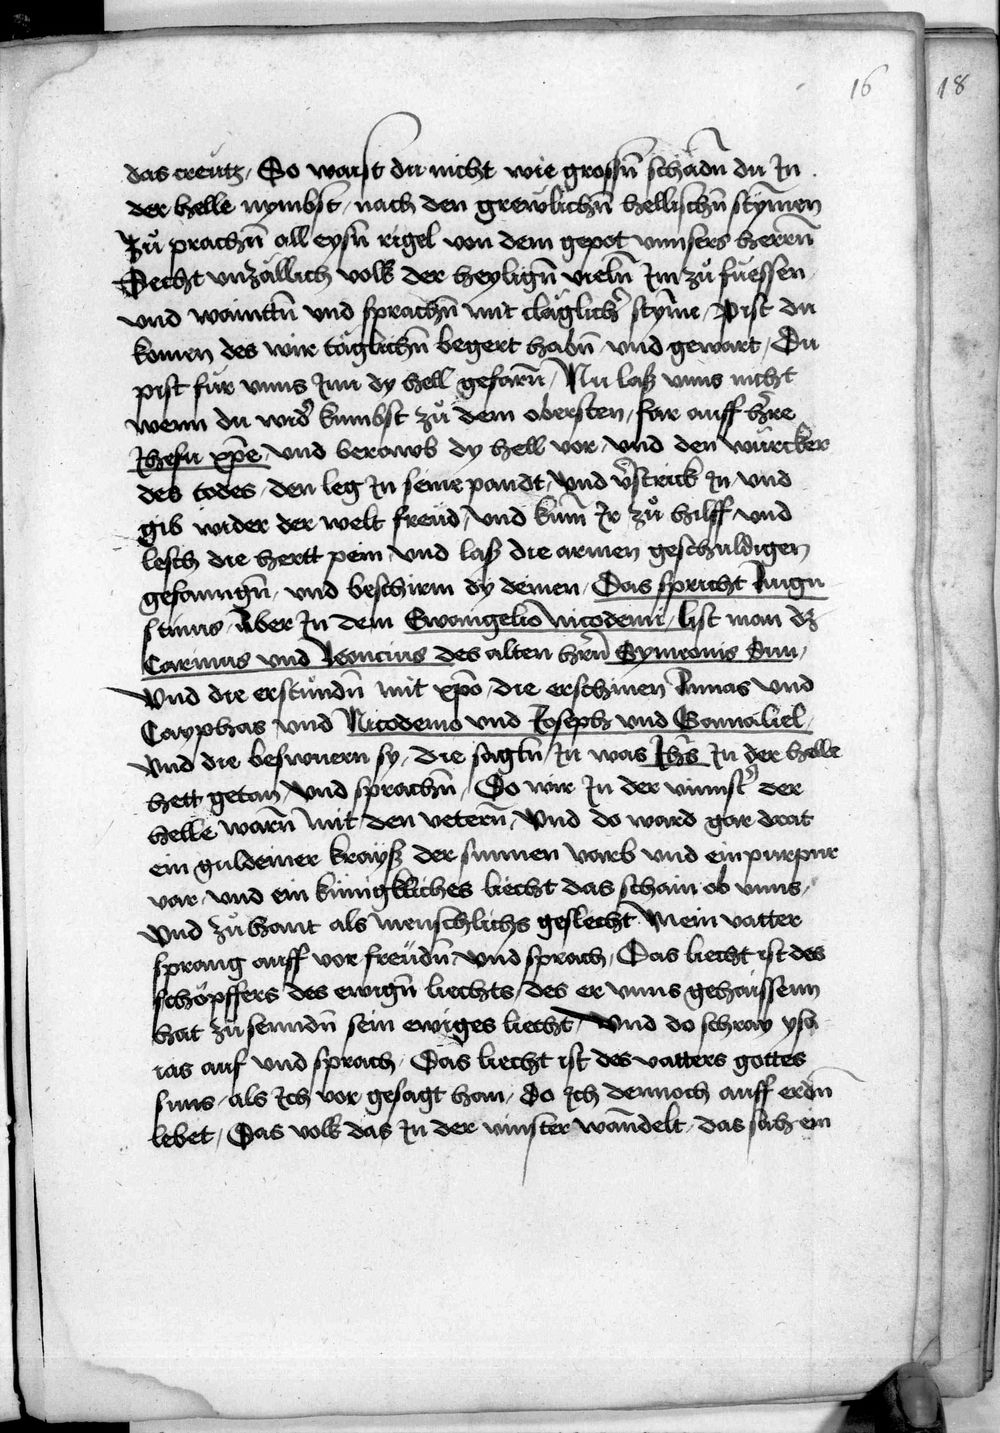 16
18
das creütz / So waist du nicht wie grossn̄ schadn̄ du In
der helle nymbst / nach den grewlichn̄ hellischn̄ stymen
Zů prachn̄ all eysn̄ rigel von dem gepot vnnsers herrn̄
Secht vnzällich volk der heylign̄ vieln̄ Im zů füessen
vnd wainttn̄ vnd sprachn̄ mit cläglichr̄ styme / Pist du
komen des wir täglichn̄ begert habn̄ vnd gewart / Du
pist für vnns Inn dy hell gefarn̄ / Nu laß vnns nicht
wenn du widr̄ kumbst zů dem obersten / far auff hr̄re
Jhesu xp̄e / vnd berawb dy hell vor / vnd den würcker
des todes / den leg In seine pandt / vnd v̄strick In vnd
gib wider der welt freüd / vnd kum̄ Ir zů hilff / vnd
lesch die hertt pein / vnd laß die armen geschuldigen
gefanngn̄ / vnd beschirm dy deinen / Das spricht Augu
stinus / Aber In dem Ewangelio nicodemi / list man dz
Carinus vnd Leoncius des alten hr̄n Symeonis Sun /
Vnd die erstuondn̄ mit xp̄o / die erschinen Annas vnd
Cayphas / vnd Nicodemo vnd Joseph vnd Gamaliel /
Vnd die beswuern sy / die sagtn̄ In was Jhs̄ In der helle
hett getan / vnd sprachn̄ / Do wir In der vinnstr̄ der
helle warn̄ mit den vetern̄ / Vnd do ward gar drat
ein guldeiner krayß der sunnen varb vnd ein purpur
var / vnd ein künigkliches liecht das schain ob vnns /
Vnd zůhant als menschlichs geslecht Mein vatter
sprang auff vor freüdn̄ / vnd sprach / Das liecht ist des
schöpffers des ewign̄ liechts / des er vnns gehaissenn
hat zů senndn̄ sein ewiges liecht / Vnd do schray ysa
ias auf vnd sprach / Das liecht ist des vatters gottes
suns / als Ich vor gesagt han / do Ich dennoch auff erdn̄
lebet / Das volk das In der vinster wandelt / das sach ein